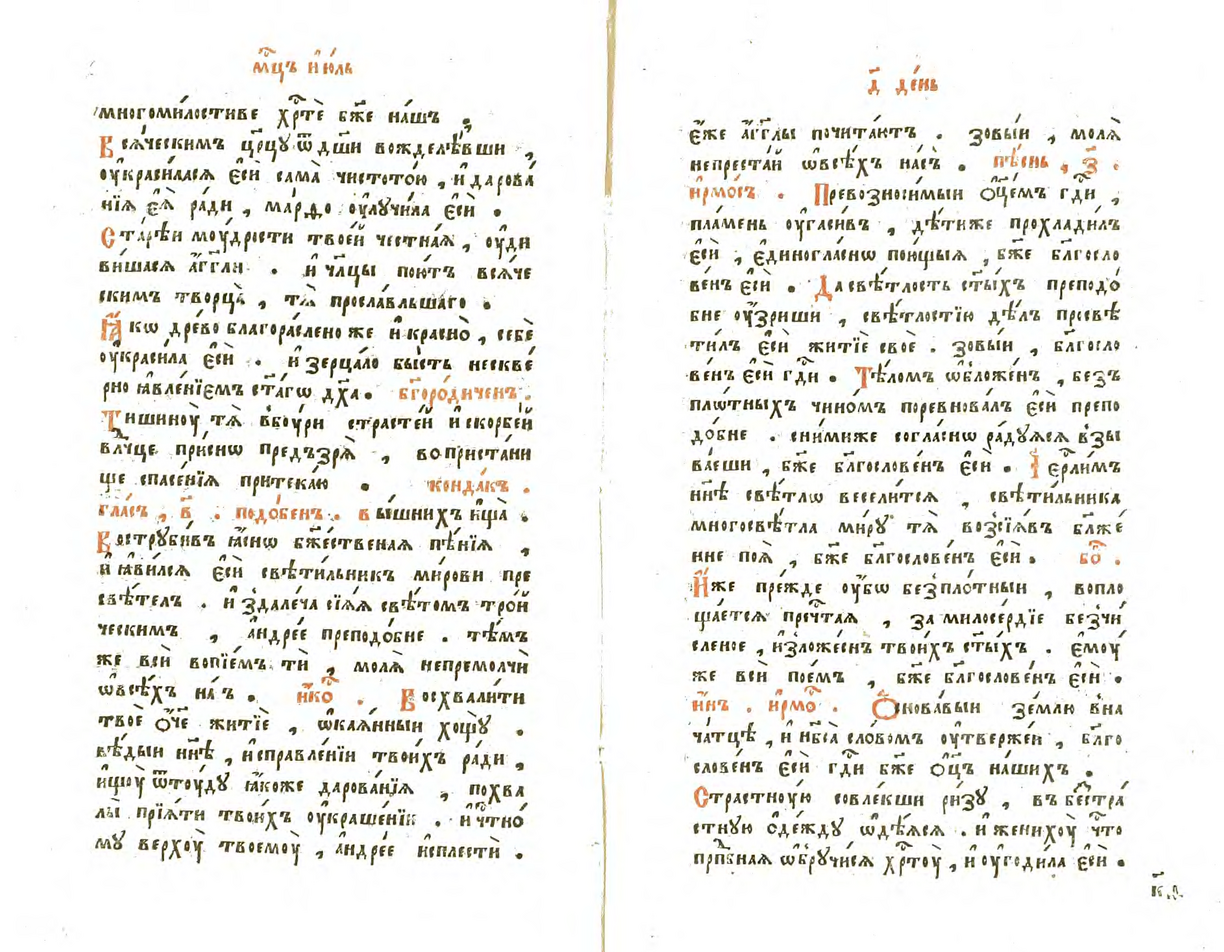 мⷭ҇цъ і҆ю́ль
многомл҇стиве хрⷭ҇тѐ бж҃е на́шъ .
Всѧ́ческимъ цр҃цу ѿ дш҃и вожделѣ́вши ,
оу҆краси́ласѧ є҆сѝ сама̀ чистото́ю , и҆ дарова́
нїѧ є҆ѧ̀ ра́ди , ма́рѳо оу҆лучи́ла є҆сѝ .
Ста́рѣи моу́дрости твое́й честна́ѧ , оу҆ди
ви́шасѧ а҆́гг҃ли . и҆ чл҃цы пою́тъ всѧ́че
скимъ творца̀ , тѧ̀ просла́вльшаго .
Ꙗ҆́кѡ дре́во благора́слено же и҆ красно̀ , себѐ
оу҆краси́ла є҆сѝ . и҆ зерца́ло бы́сть нескве́
рно ꙗ҆вле́нїемъ ст҃а́гѡ дх҃а . бг҃оро́диченъ .
Тишино́ю тѧ̀ в бу́ри страсте́й и҆ скорбе́й
влⷣчце при́снѡ предъзрѧ̀ , во приста́ни
ще спасе́нїѧ притека́ю . конда́къ .
гла́съ , в҃ . подо́бенъ . вы́шнихъ и҆щѧ̀ .
Вострꙋби́въ ꙗ҆́снѡ бж҃е́ственаѧ пѣ́нїѧ ,
и҆ ꙗ҆ви́лсѧ є҆сѝ свѣти́льникъ ми́рови пре
свѣ́телъ . и҆ здале́ча сїѧ́ѧ свѣ́томъ трои́
ческимъ , а҆ндре́е преподо́бне . тѣ́мъ
же всѝ вопїе́мъ тѝ , молѧ̀ непремолчѝ
ѡ҆ всѣ́хъ на́съ . и҆́коⷭ҇ . Восхвали́ти
твоѐ ѻ҆́ч҃е житїѐ , ѡ҆каѧ́нныи хощꙋ̀ .
вѣ́дыи нн҃ѣ , и҆справле́нїи твои́хъ ра́ди ,
и҆щꙋ̀ ѿтꙋ́дꙋ ꙗ҆́коже дарова́нїѧ , похва
лы̀ прїѧ́ти твои́хъ оу҆краше́нїи . и҆ чⷭ҇тно́
мꙋ верхꙋ̀ твоемꙋ̀ , а҆ндре́е и҆сплестѝ .
д҃ де́нь
є҆́же а҆́гг҃лы почита́ютъ . зовы́и , молѧ̀
непреста́й ѡ҆ всѣ́хъ на́съ . пѣ́снь , з҃ .
и҆рмо́съ . Превозноси́мыи ѻ҆тц҃е́мъ гдⷭ҇и ,
пла́мень оу҆гаси́въ , дѣ́тиже прохлади́лъ
є҆сѝ , є҆диногла́снѡ пою́щыѧ , бж҃е блг҃осло
ве́нъ є҆сѝ . Да свѣ́тлость ст҃ы́хъ преподо́
бне оу҆́зриши , свѣ́тлостїю дѣ́лъ просвѣ
ти́лъ є҆сѝ житїѐ своѐ . зовы́и , блг҃осло
ве́нъ є҆сѝ гдⷭ҇и . Тѣ́ломъ ѡ҆бложе́нъ , безъ
пло́тныхъ чино́мъ поревнова́лъ є҆сѝ препо
до́бне . сни́миже согла́снѡ ра́дꙋѧсѧ взы
ва́еши , бж҃е блг҃ослове́нъ є҆сѝ . І҆ерⷭ҇ли́мъ
нн҃ѣ свѣ́тлѡ весели́тсѧ , свѣти́льника
многосвѣ́тла ми́рꙋ тѧ̀ возсїѧ́въ блж҃е́
нне поѧ̀ , бж҃е блг҃ослове́нъ є҆сѝ . боⷢ҇ .
И҆́же пре́жде оу҆́бѡ безпло́тныи , вопло
ща́етсѧ преч҃таѧ , за милосе́рдїе безчи́
сленое , и҆зложе́снъ твои́хъ ст҃ы́хъ . є҆мꙋ́
же всѝ пое́мъ , бж҃е блг҃ослове́нъ є҆сѝ .
и҆́нъ . и҆рмоⷭ҇ . Ѻ҆снова́выи зе́млю вна
ча́тцѣ , и҆ нб҃са̀ сло́вомъ оу҆твержѐи , блг҃о
слове́нъ є҆сѝ гдⷭ҇и бж҃е ѻ҆ц҃ъ на́шихъ .
Стра́стнꙋю совле́кши ри́зꙋ , въ бестра́
стнꙋю ѻ҆де́ждꙋ ѡ҆дѣ́ѧсѧ . и҆ женихꙋ̀ чⷭ҇то
прпⷣбнаѧ ѡ҆брꙋчи́сѧ хрⷭ҇тꙋ̀ , и҆ оу҆годи́ла є҆сѝ .